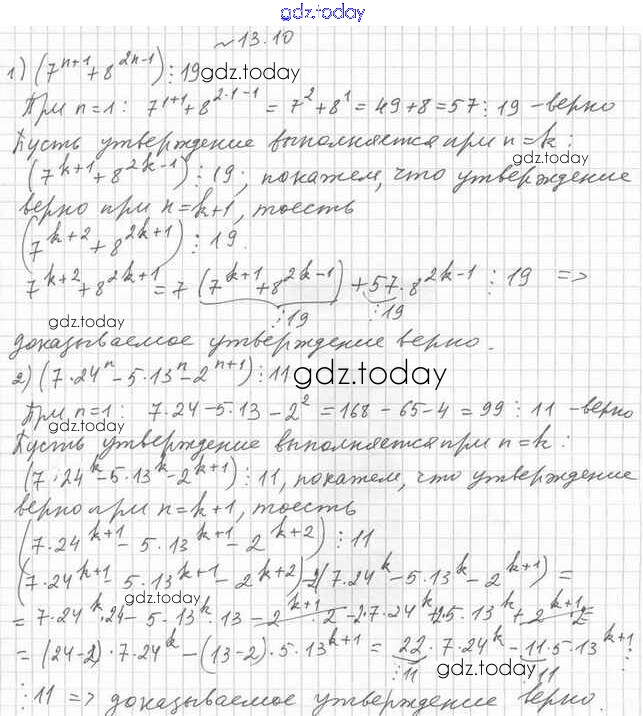 gdz.today
№13.10
1) (7^{n+1} + 8^{2n-1}) ⋮ 19 gdz.today
При n=1: 7^{1+1} + 8^{2·1-1} = 7^2 + 8^1 = 49+8 = 57 ⋮ 19 - верно
Пусть утверждение выполняется при n=k:
gdz.today
(7^{k+1} + 8^{2k-1}) ⋮ 19; покажем, что утверждение
верно при n=k+1, тоесть
(7^{k+2} + 8^{2k+1}) ⋮ 19.
7^{k+2} + 8^{2k+1} = 7 (7^{k+1} + 8^{2k-1}) + 57·8^{2k-1} ⋮ 19 =>
⋮19 ⋮19
gdz.today
доказываемое утверждение верно.
2) (7·24^n - 5·13^n - 2^{n+1}) ⋮ 11 gdz.today
При n=1: 7·24-5·13-2^2 = 168-65-4 = 99 ⋮ 11 - верно
gdz.today
Пусть утверждение выполняется при n=k:
(7·24^k - 5·13^k - 2^{k+1}) ⋮ 11, покажем, что утверждение
верно при n=k+1, тоесть
(7·24^{k+1} - 5·13^{k+1} - 2^{k+2}) ⋮ 11
(7·24^{k+1} - 5·13^{k+1} - 2^{k+2}) - 2(7·24^k - 5·13^k - 2^{k+1}) =
gdz.today
= 7·24^k·24 - 5·13^k·13 - 2^{k+1}·2 - 2·7·24^k + 2·5·13^k + 2^{k+1}·2
= (24-2)·7·24^k - (13-2)·5·13^{k+1} = 22·7·24^k - 11·5·13^{k+1} ⋮
⋮11 gdz.today ⋮11
⋮ 11 => доказываемое утверждение верно.